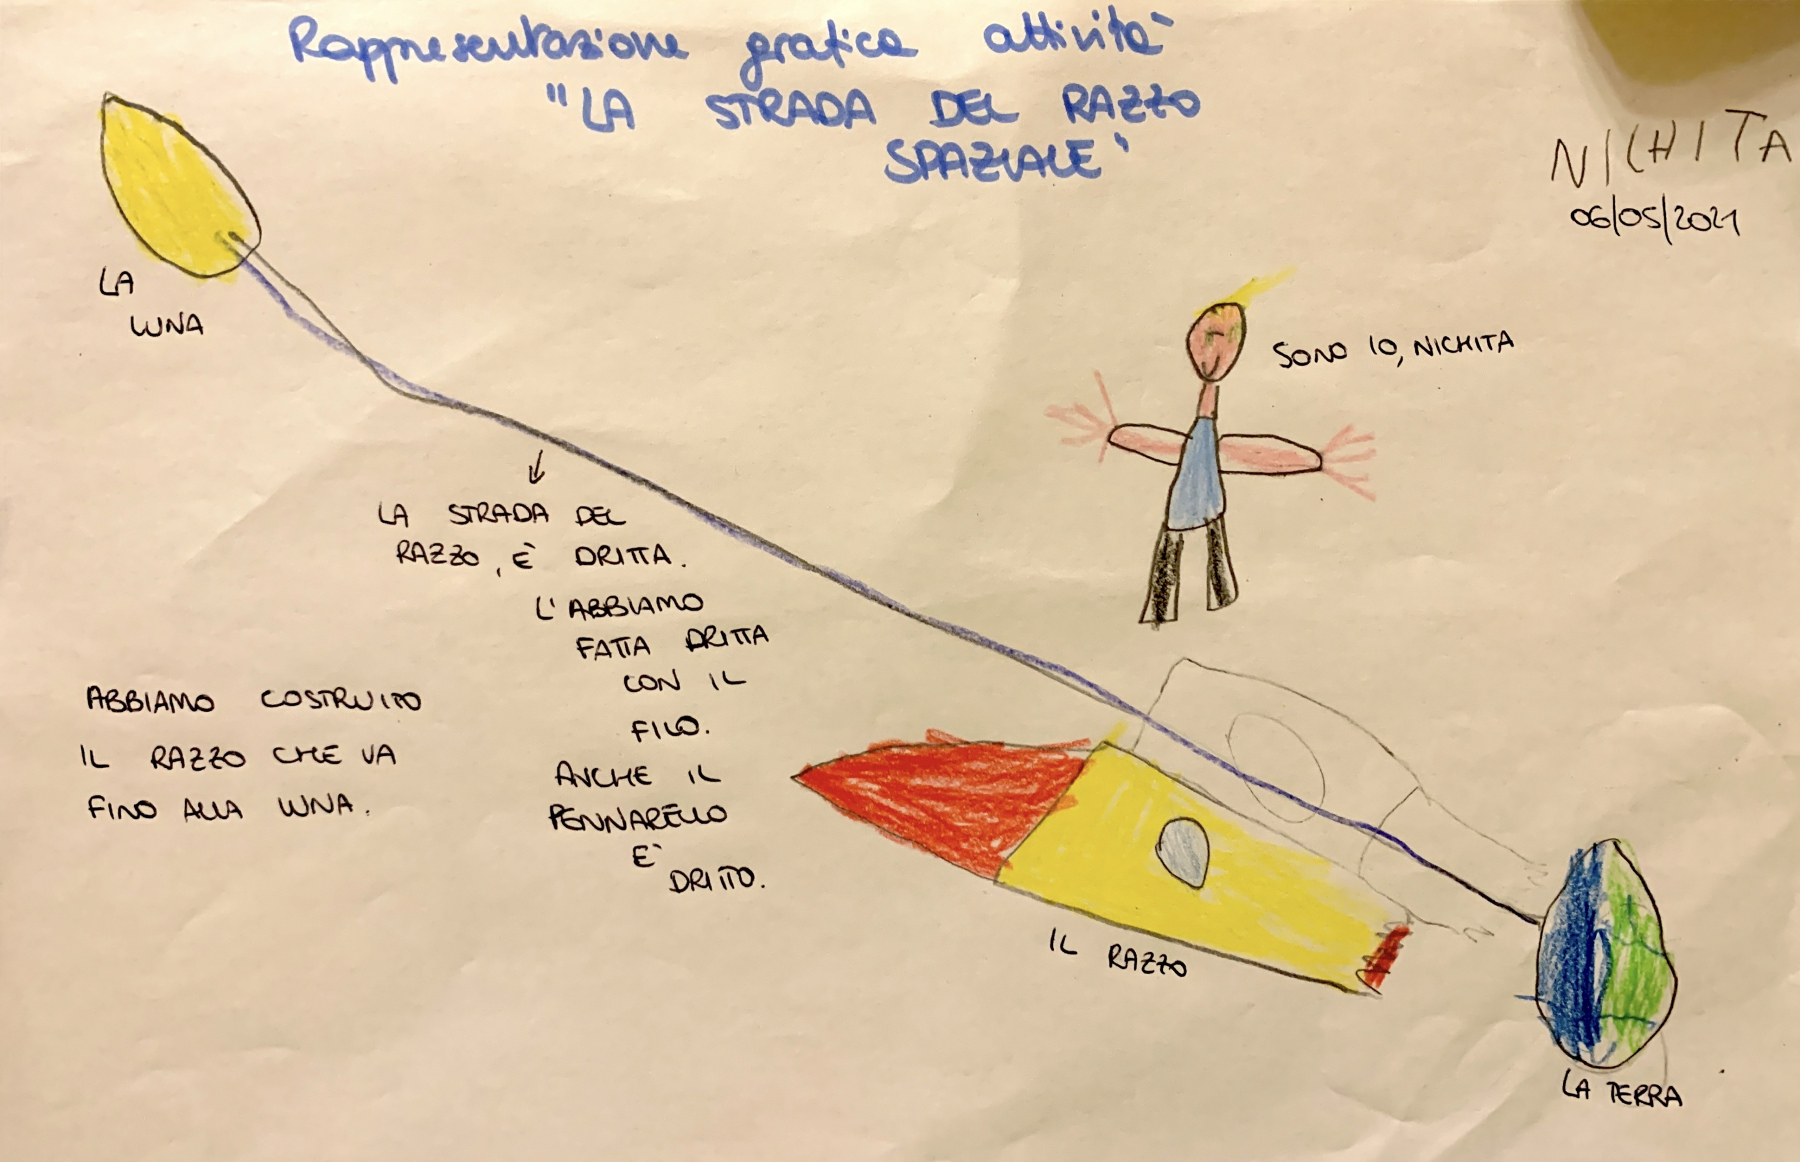 Rappresentazione grafica attività
"LA STRADA DEL RAZZO
SPAZIALE"
NICHITA
06/05/2021
LA
LUNA
SONO IO, NICHITA
LA STRADA DEL
RAZZO, È DRITTA.
L'ABBIAMO
FATTA DRITTA
CON IL
FILO.
ANCHE IL
PENNARELLO
E'
DRITTO.
ABBIAMO COSTRUITO
IL RAZZO CHE VA
FINO ALLA LUNA.
IL RAZZO
LA TERRA